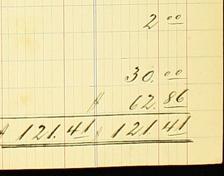 2 00
30. 00
$ 62. 86
$ 121. 41 $ 121. 41